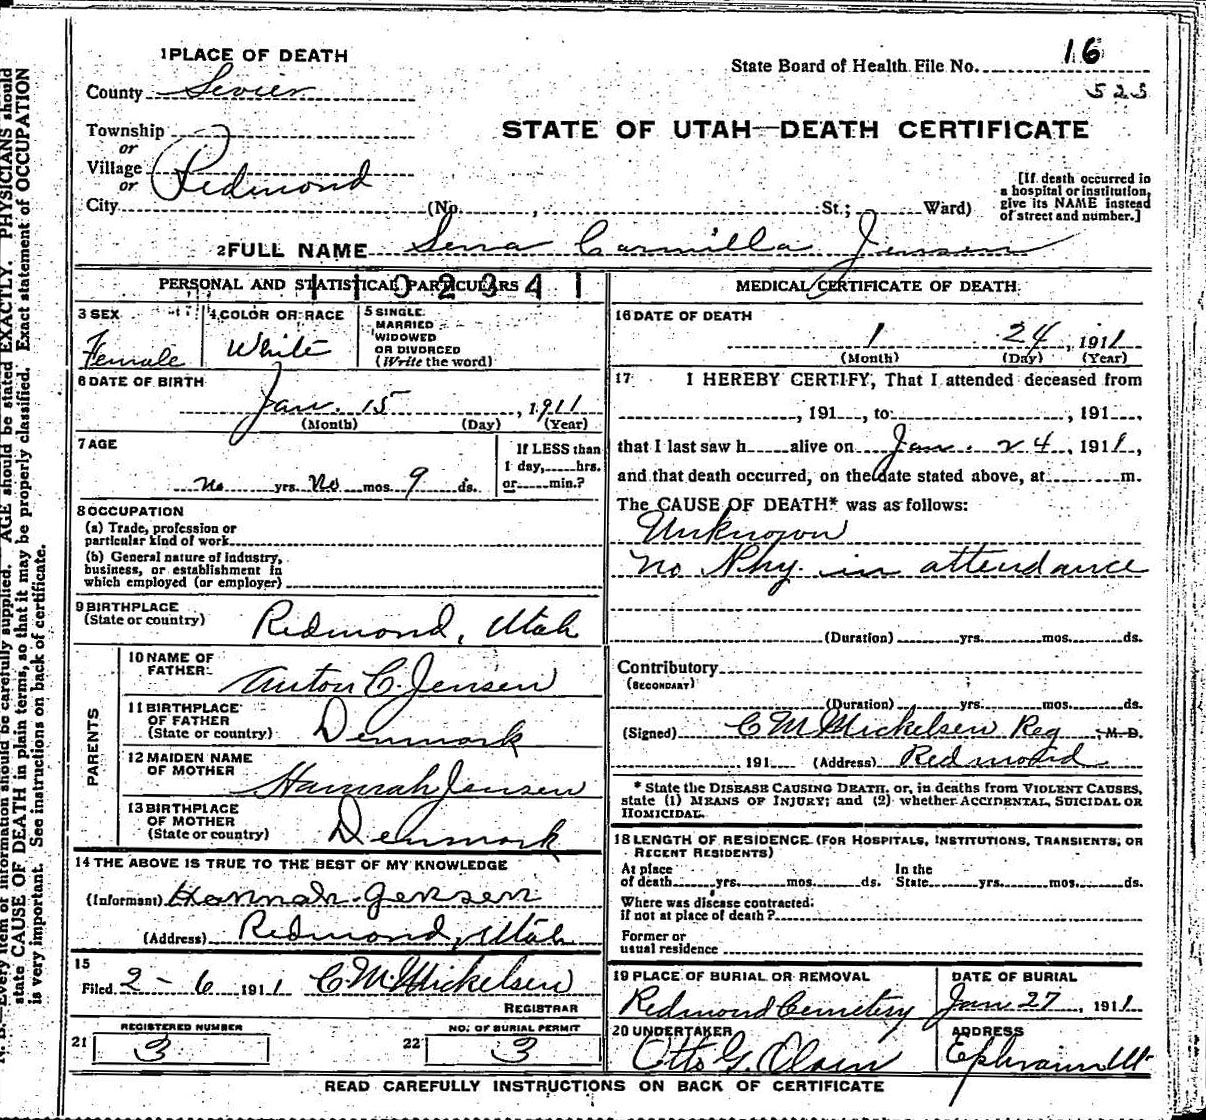 1 PLACE OF DEATH
County Sevier
Township
or
Village Redmond
or
City (No. , St.; Ward)
State Board of Health File No. 16
523
STATE OF UTAH—DEATH CERTIFICATE
[If death occurred in
a hospital or institution,
give its NAME instead
of street and number.]
2 FULL NAME Sena Carmilla Jensen
PERSONAL AND STATISTICAL PARTICULARS
1102341
3 SEX
Female
4 COLOR OR RACE
White
5 SINGLE
MARRIED
WIDOWED
OR DIVORCED
(Write the word)
6 DATE OF BIRTH
Jan. 15, 1911
(Month) (Day) (Year)
7 AGE
no yrs. no mos. 9 ds.
If LESS than
1 day, hrs.
or min.?
8 OCCUPATION
(a) Trade, profession or
particular kind of work
(b) General nature of industry,
business, or establishment in
which employed (or employer)
9 BIRTHPLACE
(State or country) Redmond, Utah
PARENTS
10 NAME OF
FATHER Anton C. Jensen
11 BIRTHPLACE
OF FATHER
(State or country) Denmark
12 MAIDEN NAME
OF MOTHER Hannah Jensen
13 BIRTHPLACE
OF MOTHER
(State or country) Denmark
14 THE ABOVE IS TRUE TO THE BEST OF MY KNOWLEDGE
(Informant) Hannah Jensen
(Address) Redmond, Utah
15
Filed 2-6 1911 C.M. Mickelsen
REGISTRAR
REGISTERED NUMBER
21 3
NO. OF BURIAL PERMIT
22 3
MEDICAL CERTIFICATE OF DEATH
16 DATE OF DEATH
1 24, 1911
(Month) (Day) (Year)
17 I HEREBY CERTIFY, That I attended deceased from
, 191 , to , 191 ,
that I last saw h alive on Jan. 24, 1911,
and that death occurred, on the date stated above, at m.
The CAUSE OF DEATH* was as follows:
Unknown
no Phy. in attendance
(Duration) yrs. mos. ds.
Contributory
(SECONDARY)
(Duration) yrs. mos. ds.
(Signed) C M Mickelsen Reg , M. D.
191 (Address) Redmond
* State the DISEASE CAUSING DEATH, or, in deaths from VIOLENT CAUSES,
state (1) MEANS OF INJURY; and (2) whether ACCIDENTAL, SUICIDAL OR
HOMICIDAL.
18 LENGTH OF RESIDENCE (FOR HOSPITALS, INSTITUTIONS, TRANSIENTS, OR
RECENT RESIDENTS)
At place
of death yrs. mos. ds.
In the
State yrs. mos. ds.
Where was disease contracted,
if not at place of death?
Former or
usual residence
19 PLACE OF BURIAL OR REMOVAL
Redmond Cemetery
DATE OF BURIAL
Jan 27, 1911
20 UNDERTAKER
Otto G. Olsen
ADDRESS
Ephraim Ut
READ CAREFULLY INSTRUCTIONS ON BACK OF CERTIFICATE
N. B.—Every item of information should be carefully supplied. AGE should be stated EXACTLY. PHYSICIANS should
state CAUSE OF DEATH in plain terms, so that it may be properly classified. Exact statement of OCCUPATION
is very important. See instructions on back of certificate.